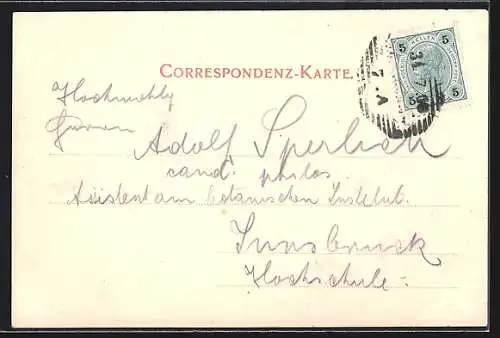 CORRESPONDENZ-KARTE.
5 HELLER 5
5 5
Hochwohlg
Herrn
Adolf Sperlich
cand. philos.
Assistent am botanischen Institut.
Innsbruck
Hochschule.